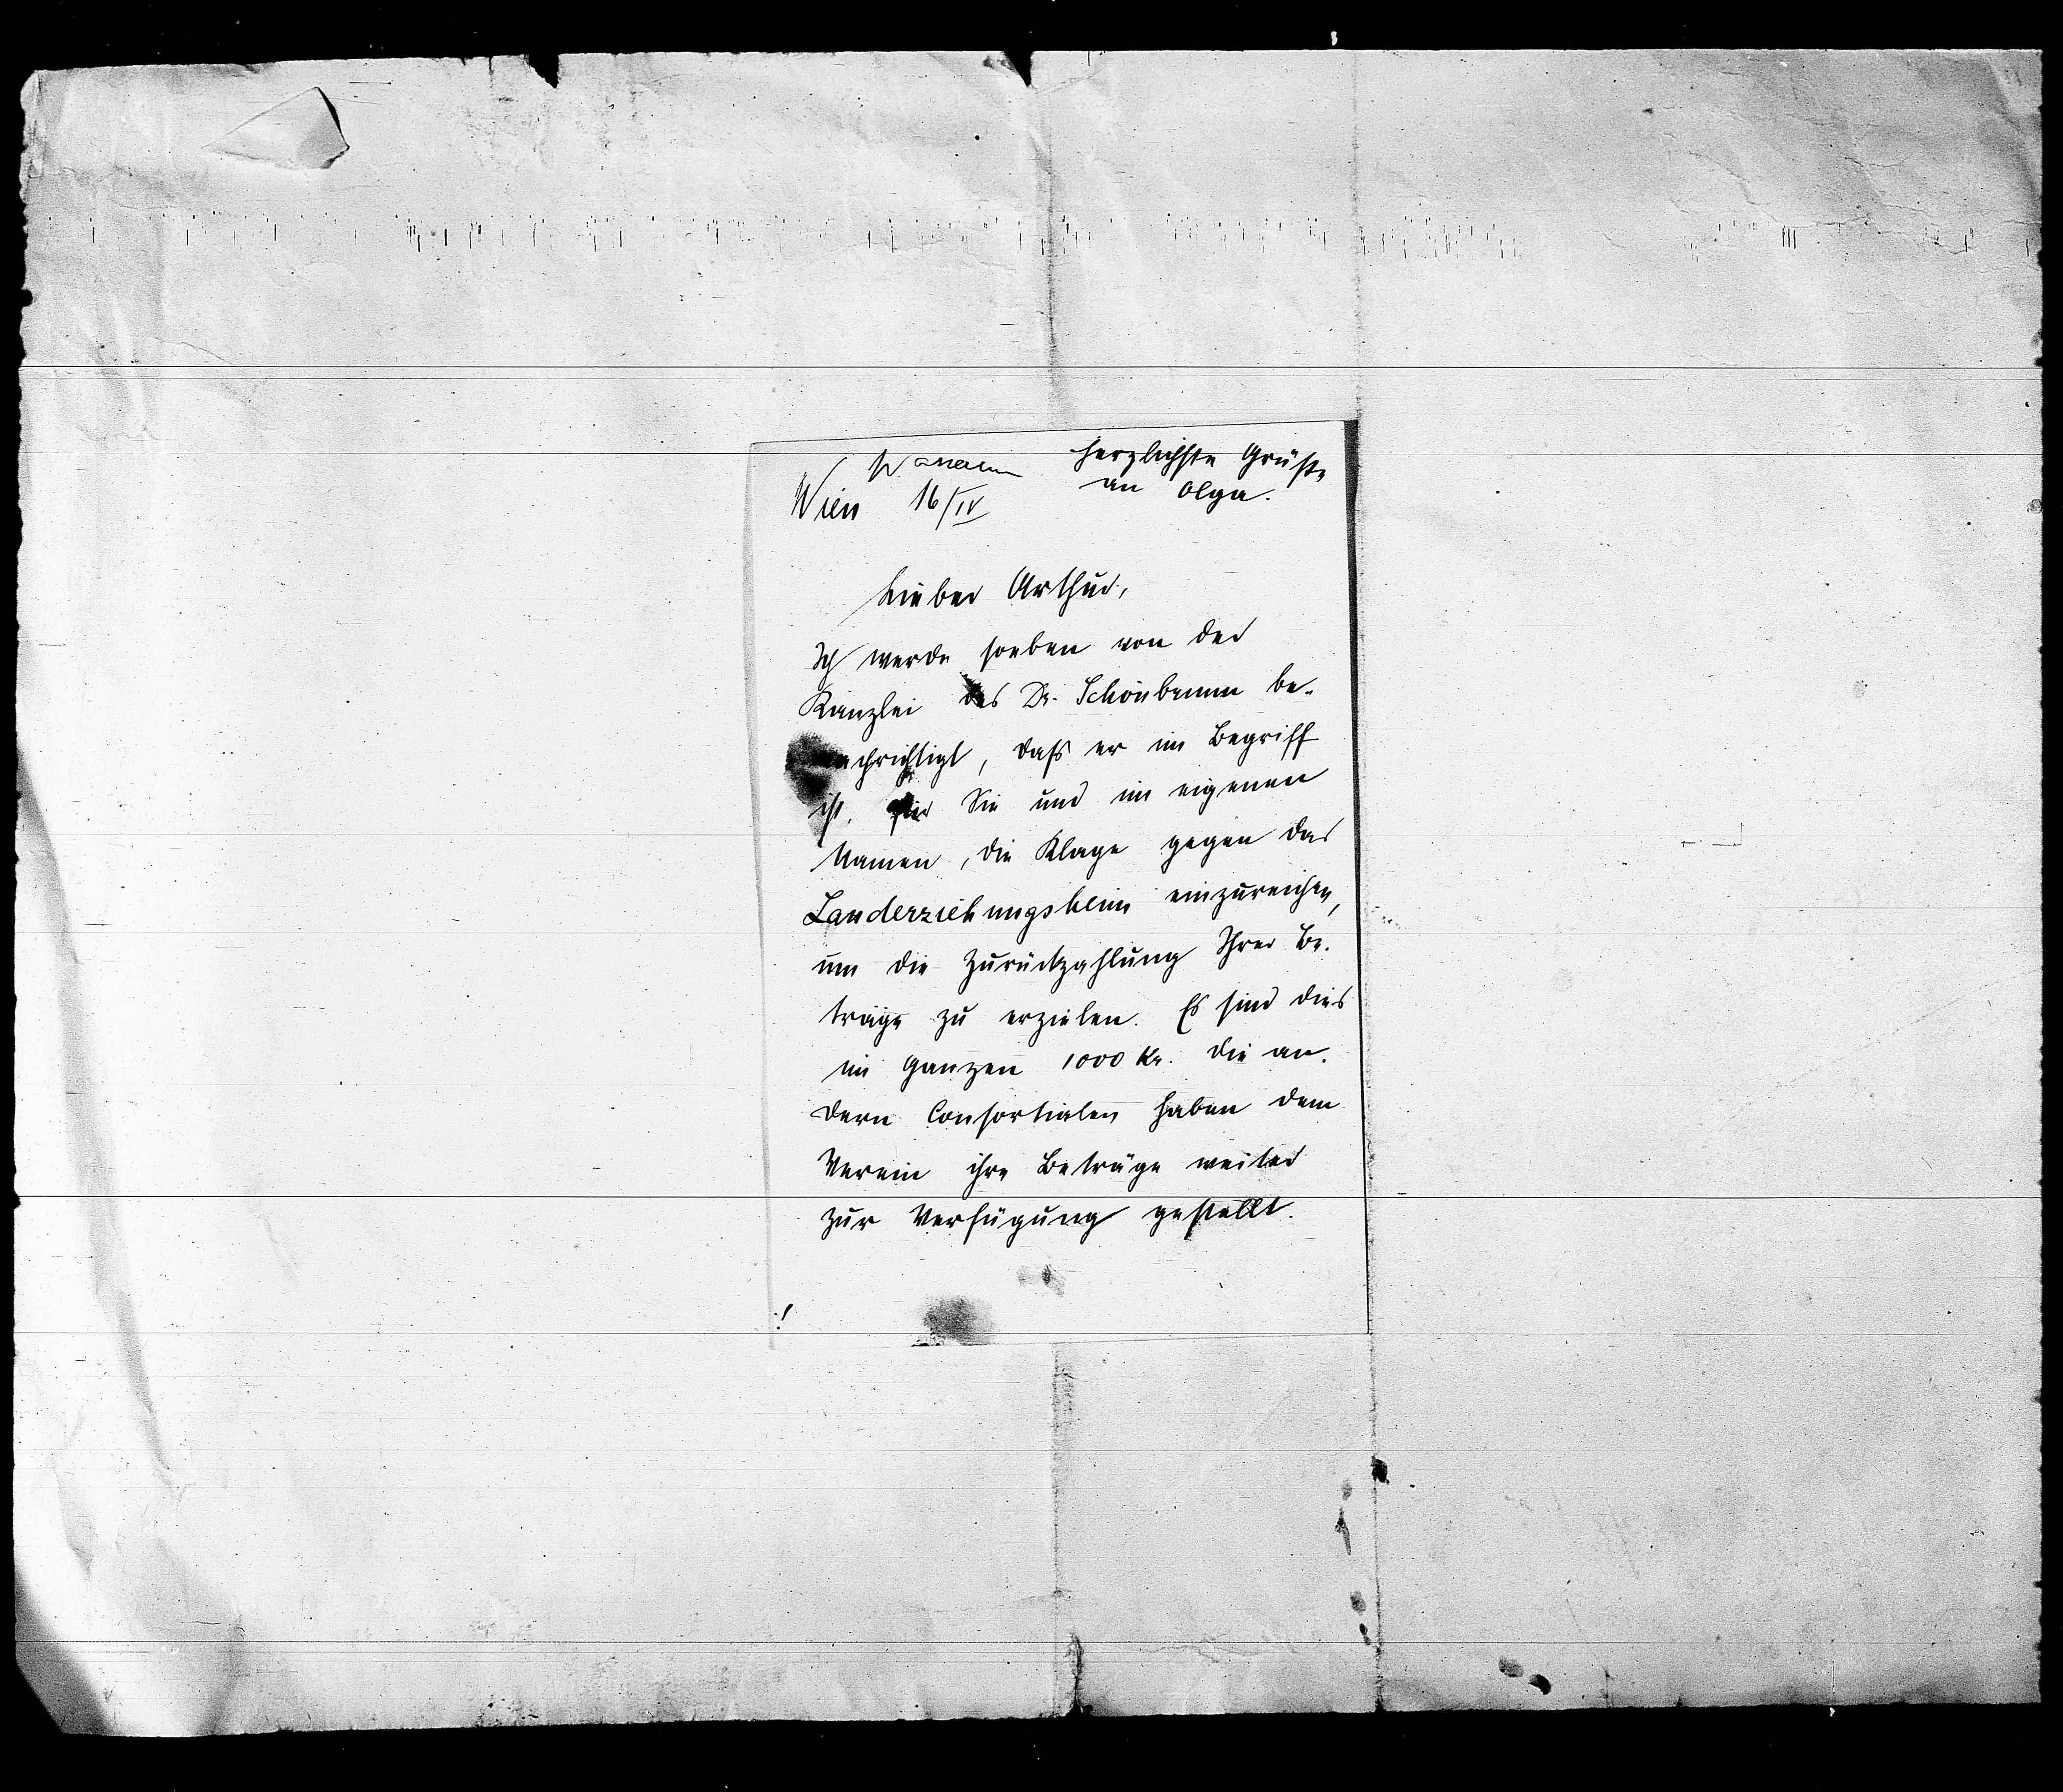 Wassermann
herzlichste Grüße
an Olga.
Wien 16/IV
Lieber Arthur,
Ich werde soeben von der
Kanzlei des Dr. Schönbrunn be-
nachrichtigt, dass er im Begriff
ist, für Sie und im eigenen
Namen, die Klage gegen das
Landerziehungsheim einzureichen,
um die Zurückzahlung Ihrer Be-
träge zu erzielen. Es sind dies
im Ganzen 1000 Kr. Die an-
dern Consortialen haben dem
Verein ihre Beträge weiter
zur Verfügung gestellt.